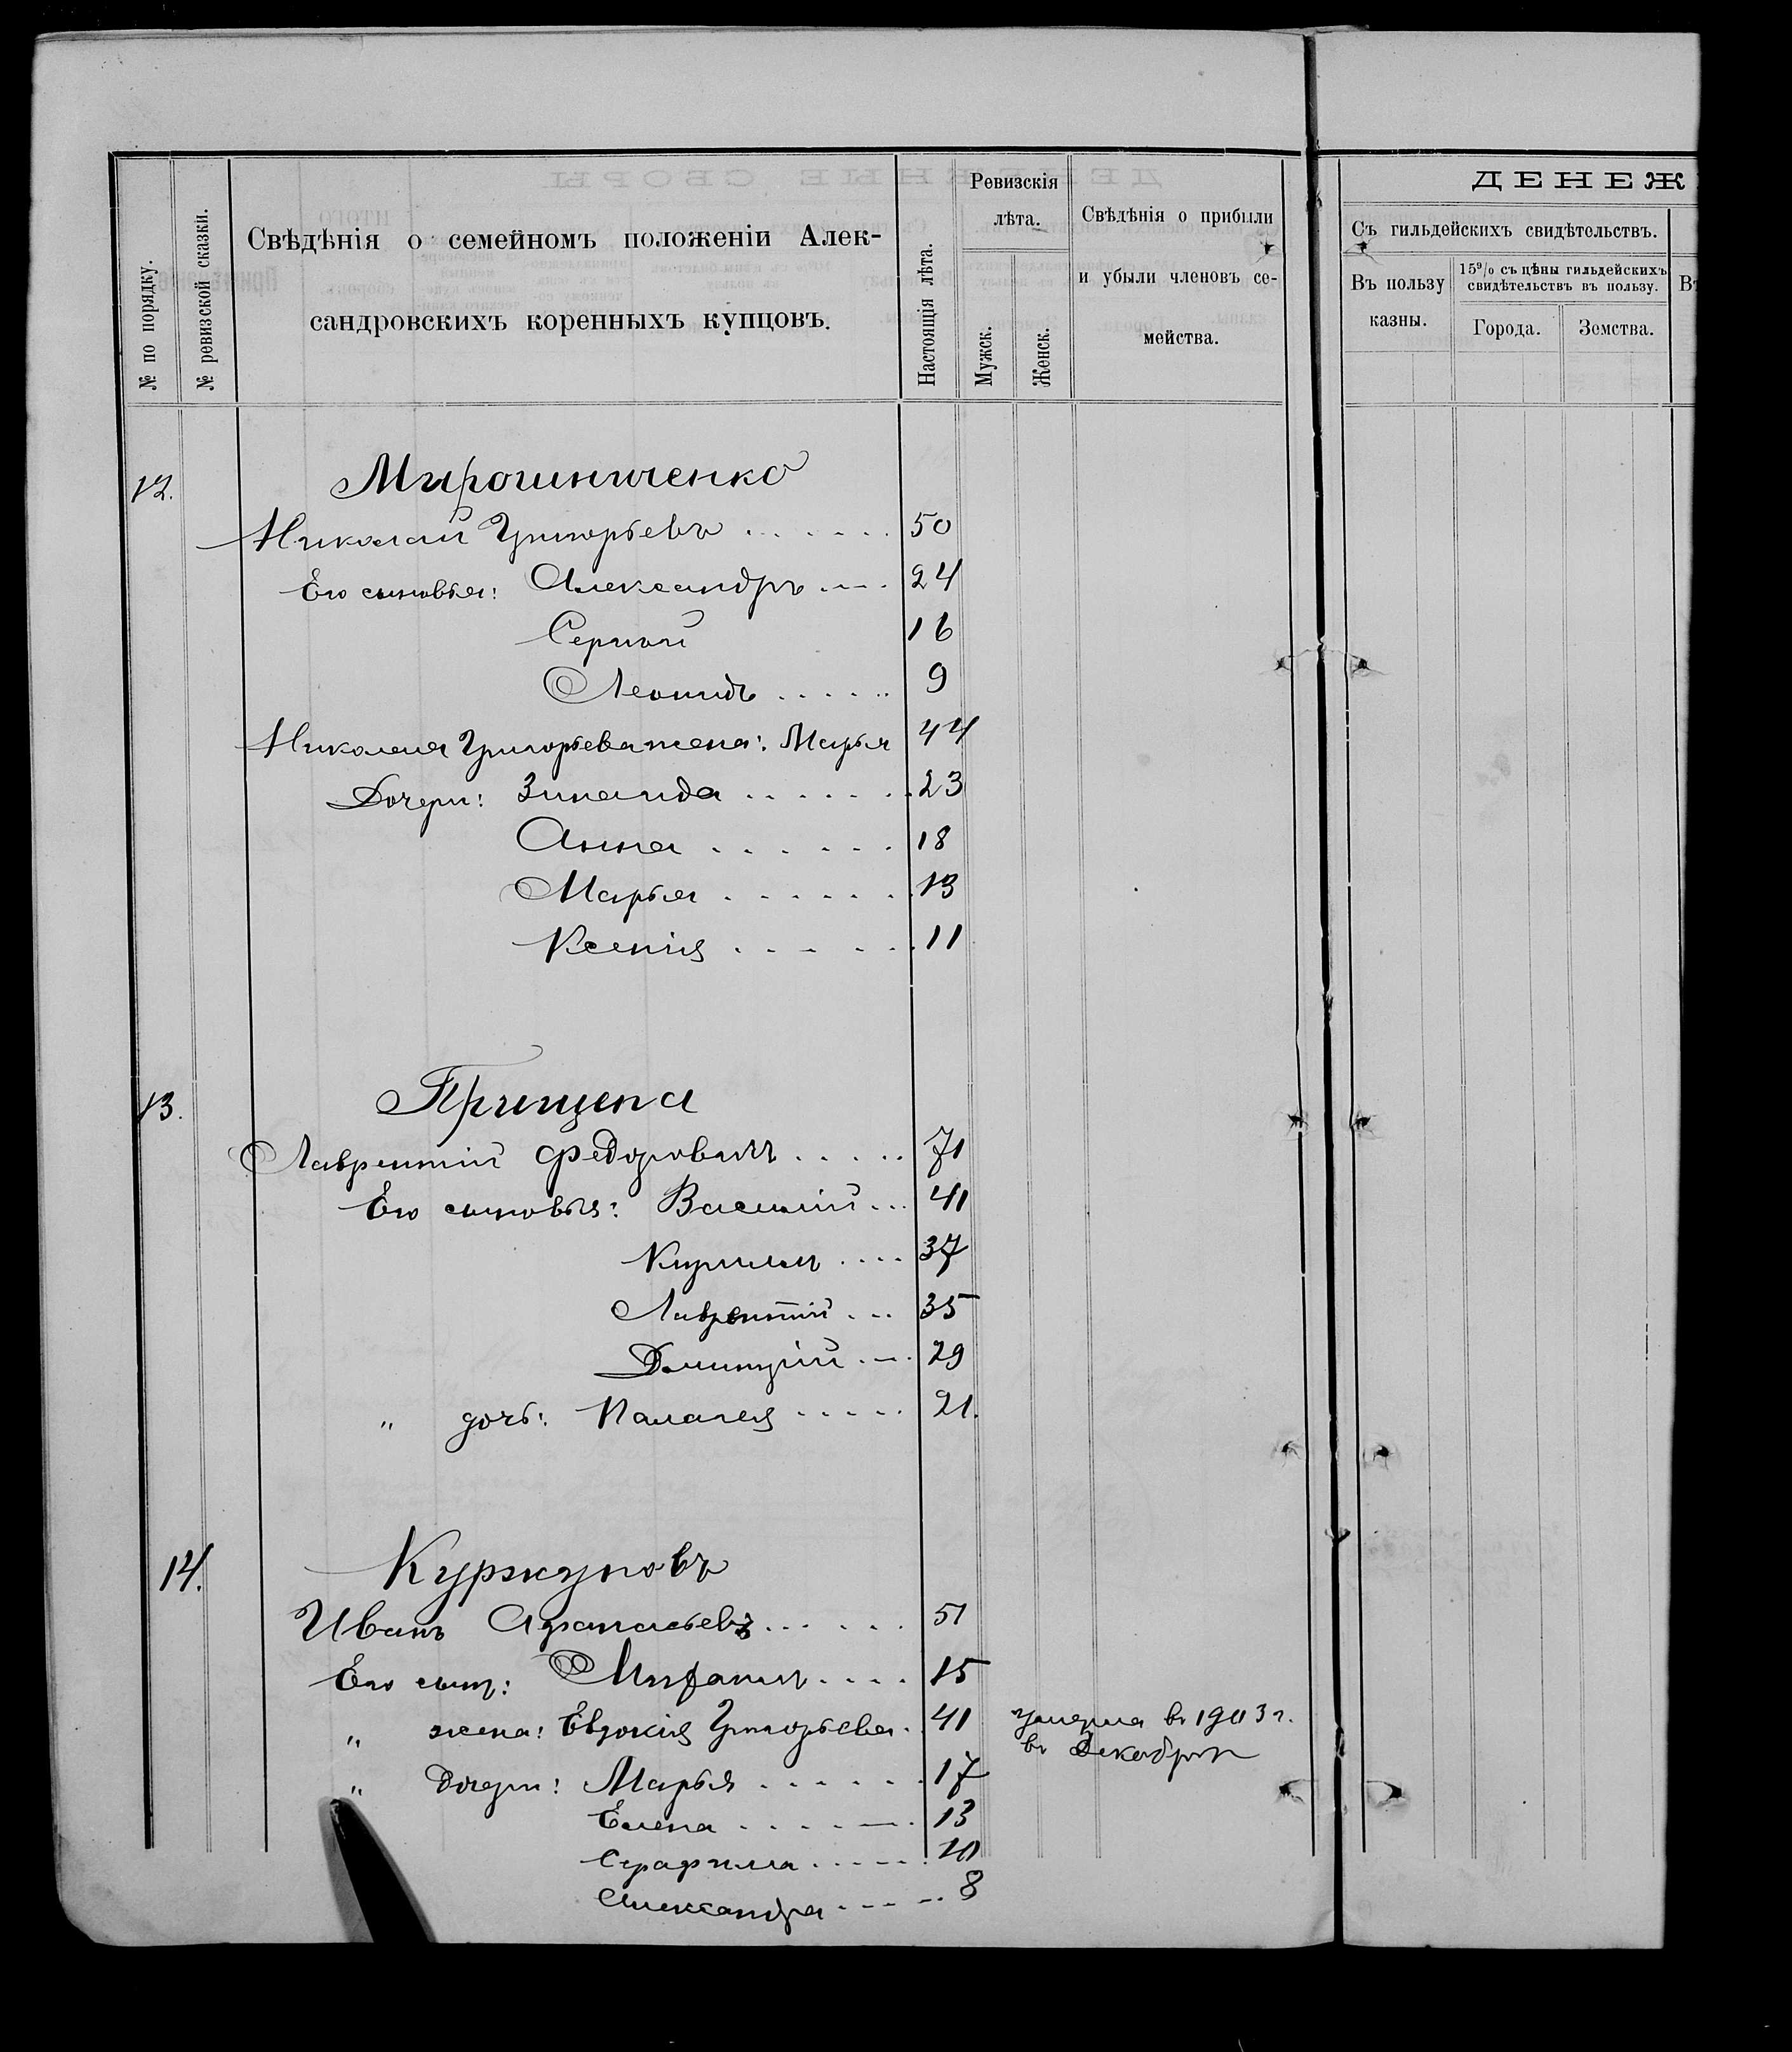 № по порядку.
№ ревизской сказки.
Свѣдѣнія о семейномъ положеніи Алек-
сандровскихъ коренныхъ купцовъ.
Настоящія лѣта.
Ревизскія
лѣта.
Мужск.
Женск.
Свѣдѣнія о прибыли
и убыли членовъ се-
мейства.
ДЕНЕЖ
Съ гильдейскихъ свидѣтельствъ.
Въ пользу
казны.
15% съ цѣны гильдейскихъ
свидѣтельствъ въ пользу.
Города.
Земства.
12. Мирошниченко
Николай Григорьевъ . . . . . . 50
Его сыновья: Александръ . — . 24
Сергѣй 16
Леонидъ . . . . . 9
Николая Григорьева жена: Марья 44
Дочери: Зинаида . . . . . . . 23
Анна . . . . . . 18
Марья . . . . . . . 13
Ксенія . . . . . . 11
13. Прищепа
Лаврентій Федоровичъ . . . . . 71
Его сыновья: Василій . . . 41
Кириллъ . . . . 37
Лаврентій . . . 35
Дмитрій . — . 29
" дочь: Палагея . . . . . 21.
14. Куржуповъ
Иванъ Афанасьевъ . . . . . . 51
Его сынъ: Митрофанъ . . . . 15
" жена: Евдокія Григорьева . 41 умерла въ 1903 г.
въ Декабрѣ
" дочери: Марья . . . . . . 17
Елена . . . . — . 13
Серафима . . . . . . 10
Александра . . . . . . 8